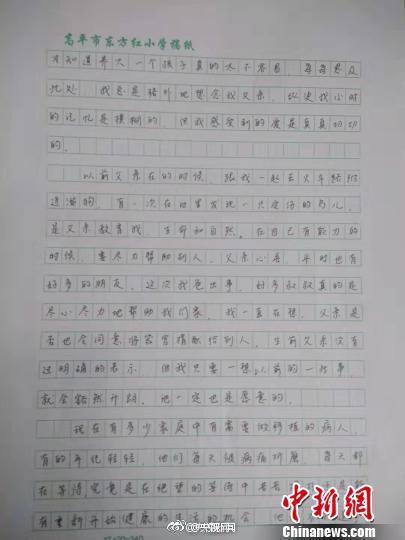 高平市东方红小学稿纸
才知道养大一个孩子真的太不容易，每每想及
此处，我总是格外地想念我父亲，纵使我小时
的记忆是模糊的，但我感受到的爱是真真切切
的。
以前父亲在的时候，跟我一起去火车站附
近遛狗，有一次在田里发现一只受伤的鸟儿，
是父亲教育我，生命和自然。在自己有能力的
时候，要尽力帮助别人。父亲心善，平时也有
好多的朋友，这次我爸出事，好多叔叔真的是
尽心尽力地帮助我们家。我一直在想，父亲是
否也会同意将器官捐献给别人，生前父亲没有
过明确的表示，但我只要一想以前的一些事，
就会豁然开朗，他一定也是愿意的。
现在有多少家庭中有需要做移植的病人，
有的年纪轻轻，他们每天被病痛折磨，每天都
在等待究竟是在绝望的等待中苦苦
有重新开始健康的生活的机会
@央视新闻
中新网
www.chinanews.com